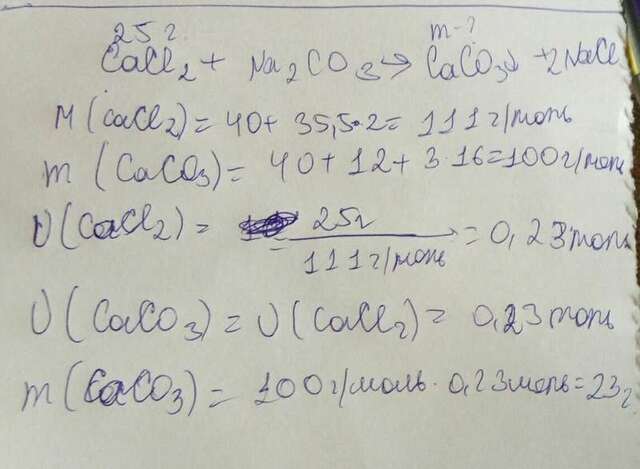 25 г. m-?
CaCl2 + Na2CO3 → CaCO3↓ + 2NaCl
M(CaCl2) = 40 + 35,5·2 = 111 г/моль
m(CaCO3) = 40 + 12 + 3·16 = 100 г/моль
υ(CaCl2) = 25г / 111 г/моль = 0,23 моль
υ(CaCO3) = υ(CaCl2) = 0,23 моль
m(CaCO3) = 100 г/моль · 0,23 моль = 23 г